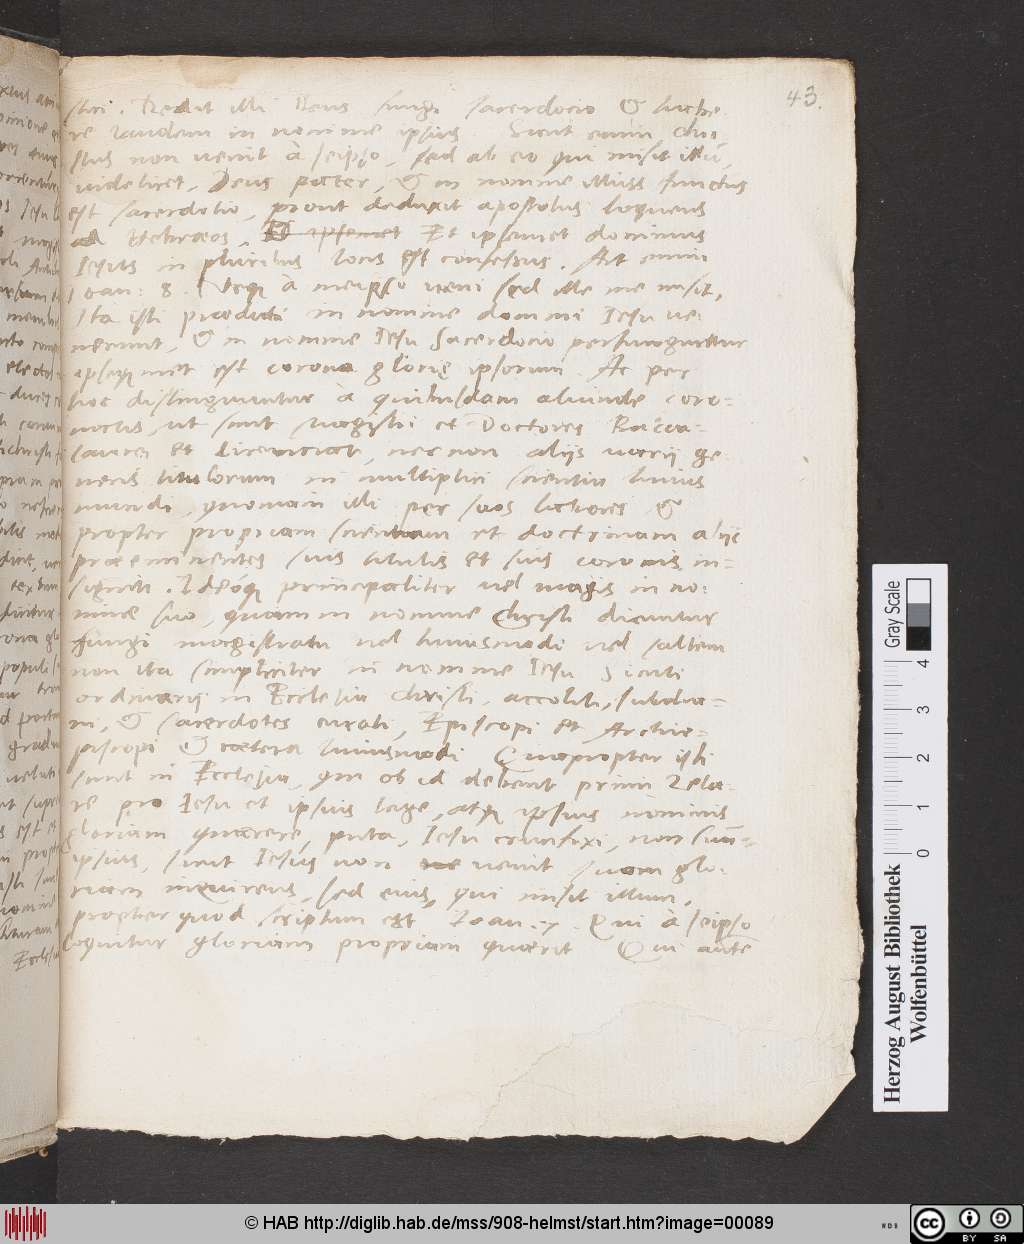 43.
stri. Dedit illi Deus fungi sacerdocio & habe
re laudem in nomine ipsius. Sicut enim Chri
stus non uenit à seipso, sed ab eo qui misit illū,
uidelicet, Deus pater, & in nomine illius functus
est sacerdotio, prout deduxit apostolus loquens
ad Hebræos, Et ipsemet dominus
Iesus in pluribus locis est confessus. Ait enim
Ioan: 8. Neq à meipso ueni sed ille me misit,
Ita isti prædicti in nomine domini Iesu ue:
nerunt, & in nomine Iesu Sacerdocio perfunguntur
met est corona glorię ipsorum. Ac per
hoc distinguuntur à quibusdam aliunde coro=
natis, ut sunt Magistri et Doctores Bacca=
laurei et Licenciati, nec non alijs uarij ge
neris titulorum in multiplici scientia huius
mundi, quoniam illi per suos lectores &
propter propriam scientiam et doctrinam alijs
præeminentes suis titulis et suis coronis in=
signiti. Ideoq principaliter uel magis in no:
mine suo, quam in nomine Christi dicuntur
fungi magistratu uel huiusmodi uel saltem
non ita simpliciter in nomine Iesu Sicuti
ordinarij in Ecclesia Christi, accoliti, subdia=
ni, & sacerdotes curati, Episcopi et Archie=
piscopi & cætera huiusmodi Quapropter isti
sunt in Ecclesia, qui ob id debent primi Zela
re pro Iesu et ipsius lege, atq ipsius nominis
gloriam quærere, puta, Iesu crucifixi, non suū=
ipsius, sicut Iesus non uenit suam glo:
riam inquirens, sed eius, qui misit illum,
propter quod scriptum est Ioan. 7. Qui à seipso
loquitur gloriam propriam quærit Qui autē
Gray Scale
4
3
2
1
0
Herzog August Bibliothek
Wolfenbüttel
© HAB http://diglib.hab.de/mss/908-helmst/start.htm?image=00089
WDB
CC BY SA